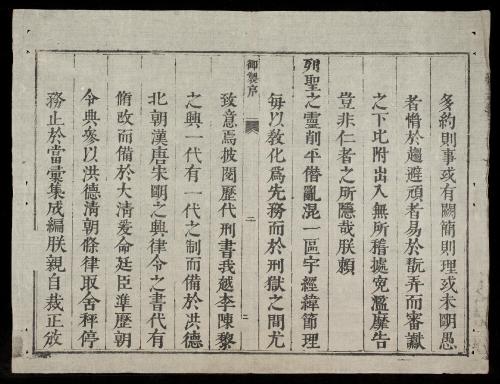 多約則事或有闕簡則理或未明愚
者惛於趨避頑者易於翫弄而審讞
之下比附出入無所稽據寃濫靡告
豈非仁者之所隱哉朕賴
列聖之靈削平僭亂混一區宇經緯節理
每以敎化爲先務而於刑獄之間尤
御製序
二
致意焉披閱歷代刑書我越李陳黎
之興一代有一代之制而備於洪德
北朝漢唐宋明之興律令之書代有
脩改而備於大清爰命廷臣準歷朝
令典參以洪德清朝條律取舍秤停
務止於當彙集成編朕親自裁正放